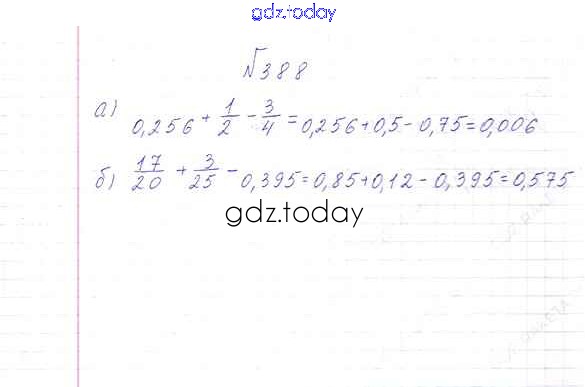 gdz.today
№388
а) 0,256 + 1/2 - 3/4 = 0,256+0,5-0,75=0,006
б) 17/20 + 3/25 - 0,395=0,85+0,12-0,395=0,575
gdz.today